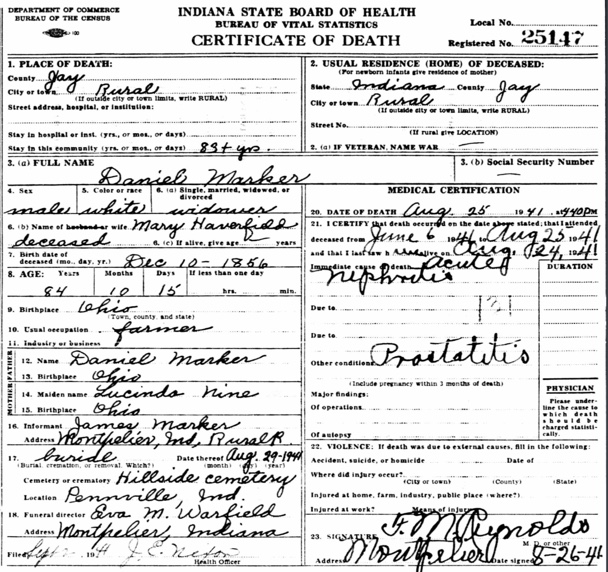 DEPARTMENT OF COMMERCE
BUREAU OF THE CENSUS
INDIANA STATE BOARD OF HEALTH
BUREAU OF VITAL STATISTICS
CERTIFICATE OF DEATH
Local No.
Registered No. 25147
1. PLACE OF DEATH:
County Jay
City or town Rural
(If outside city or town limits, write RURAL)
Street address, hospital, or institution:
Stay in hospital or inst. (yrs., or mos., or days)
Stay in this community (yrs., or mos., or days) 83+ yrs.
2. USUAL RESIDENCE (HOME) OF DECEASED:
(For newborn infants give residence of mother)
State Indiana County Jay
City or town Rural
(If outside city or town limits, write RURAL)
Street No.
(If rural give LOCATION)
2. (a) IF VETERAN, NAME WAR —
3. (a) FULL NAME
Daniel Marker
3. (b) Social Security Number
—
4. Sex
male
5. Color or race
white
6. (a) Single, married, widowed, or divorced
widower
6. (b) Name of husband or wife Mary Haverfield
deceased
6. (c) If alive, give age years
7. Birth date of
deceased (mo., day, yr.) Dec 10-1856
8. AGE: Years Months Days If less than one day
84 10 15 hrs. min.
9. Birthplace Ohio
(Town, county, and state)
10. Usual occupation farmer
11. Industry or business
FATHER
12. Name Daniel Marker
13. Birthplace Ohio
MOTHER
14. Maiden name Lucinda Nine
15. Birthplace Ohio
16. Informant James Marker
Address Montpelier, Ind, Rural R.
17. buride Date thereof Aug. 29-1941
(Burial, cremation, or removal. Which?) (month) (day) (year)
Cemetery or crematory Hillside cemetery
Location Pennville, Ind.
18. Funeral director Eva M. Warfield
Address Montpelier, Indiana
Filed Sept J. C. Nixon
Health Officer
MEDICAL CERTIFICATION
20. DATE OF DEATH Aug. 25 1941 at 440PM
21. I CERTIFY that death occurred on the date above stated; that I attended
deceased from June 6 1941 to Aug 25 1941
and that I last saw h alive on Aug. 24, 1941
Immediate cause of death acute
DURATION
Nephritis
Due to 131
Due to
Other conditions Prostatitis
(Include pregnancy within 3 months of death)
Major findings:
Of operations
Of autopsy
PHYSICIAN
Please underline the cause to which death should be charged statistically.
22. VIOLENCE: If death was due to external causes, fill in the following:
Accident, suicide, or homicide Date of
Where did injury occur?
(City or town) (County) (State)
Injured at home, farm, industry, public place (where?)
Injured at work? Means of injury
23. SIGNATURE F. M. Reynolds
M. D. or other
Address Montpelier Date signed 8-26-41